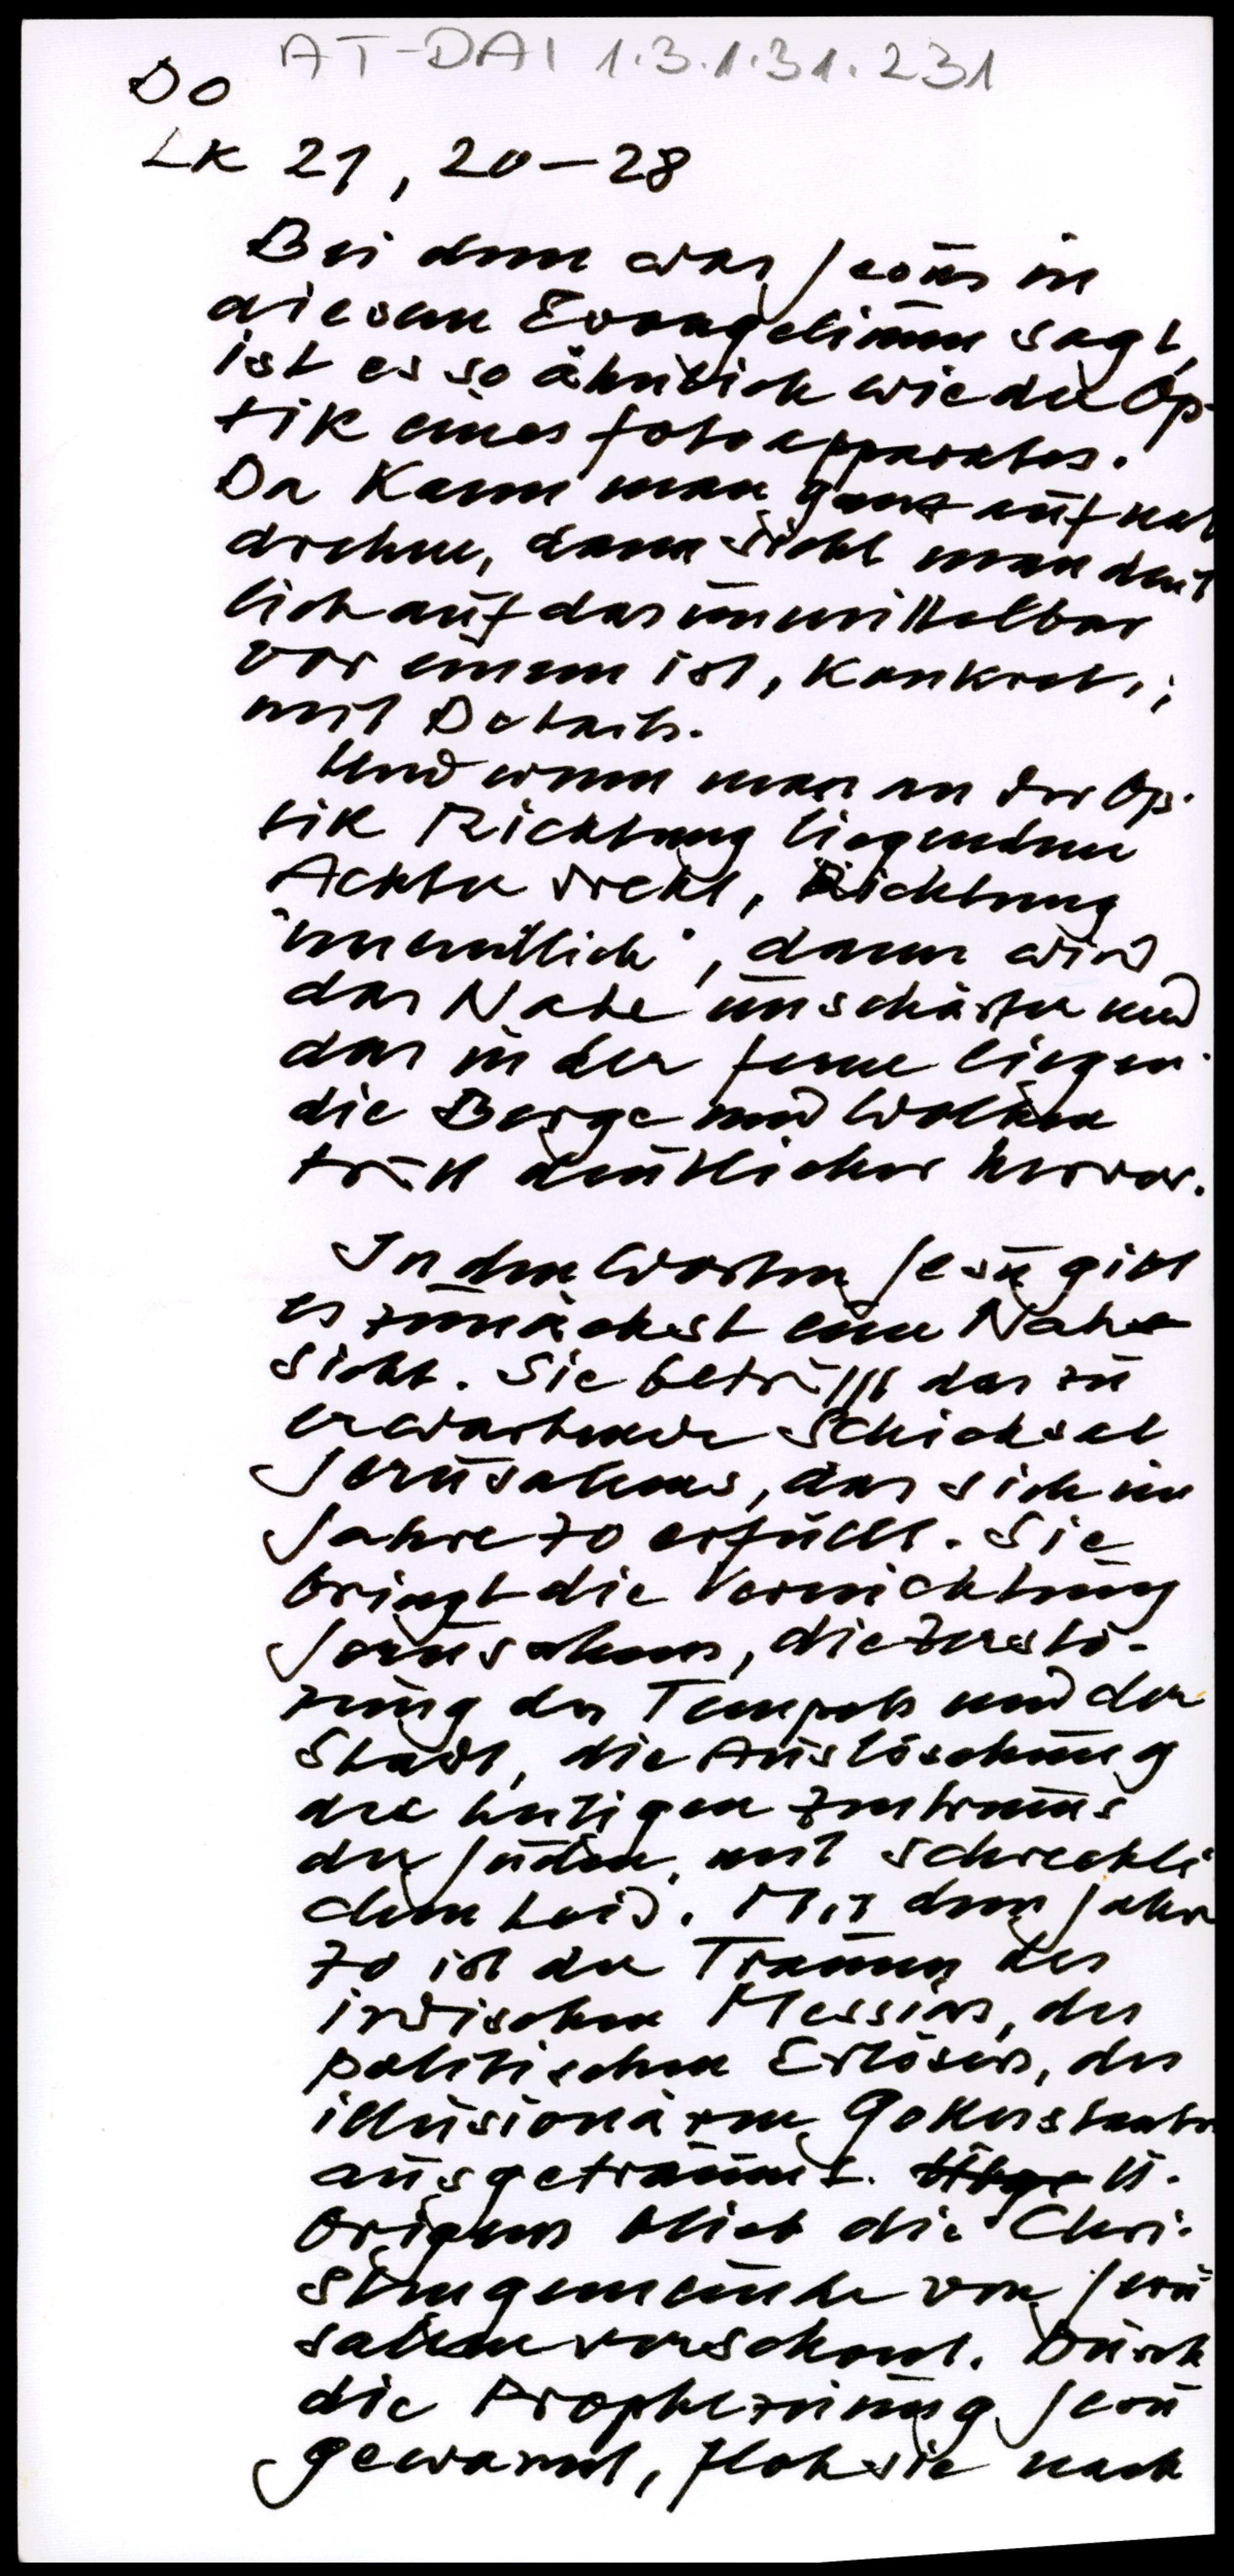 AT-DAI 1.3.1.31.231
Do
Lk 21, 20-28
Bei dem was Jesus in
diesem Evangelium sagt,
ist es so ähnlich wie der Op-
tik eines Fotoapparates.
Da kann man ganz auf nah
drehen, dann sieht man deut
lich auf das unmittelbar
vor einem ist, konkret,
mit Details.
Und wenn man an der Op-
tik Richtung liegenden
Achter dreht, Richtung
"unendlich", dann wird
das Nahe unschärfer und
das in der Ferne liegen-
die Berge und Wolken
tritt deutlicher hervor.
In den Worten Jesu gibt
es zunächst eine Nah
sicht. Sie betrifft das zu
erwartende Schicksal
Jerusalems, das sich im
Jahre 70 erfüllt. Sie
bringt die Vernichtung
Jerusalems, die Zerstö-
rung des Tempels und der
Stadt, die Auslöschung
des heutigen Zentrums
der Juden, mit schreckli
chem Leid. Mit dem Jahr
70 ist der Traum des
irdischen Messias, des
politischen Erlösers, des
illusionären Gottesstaates
ausgeträumt. Ü.
brigens blieb die Chri-
stengemeinde von Jeru
salem verschont. Durch
die Prophezeiung Jesu
gewarnt, floh sie nach